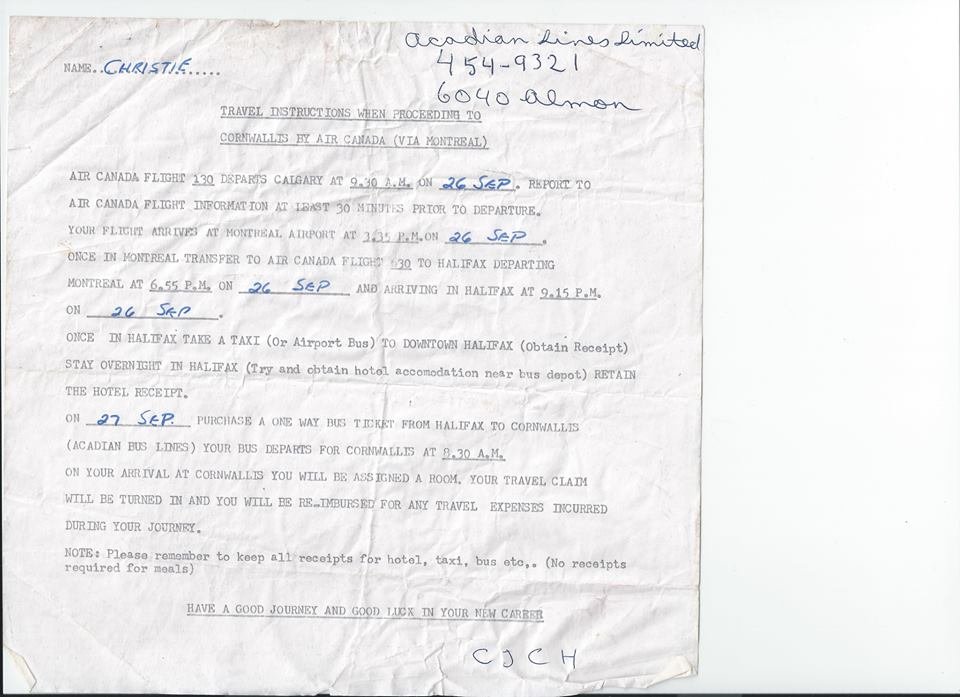 Acadian Lines Limited
454-9321
6040 Almon
NAME..CHRISTIE.....
TRAVEL INSTRUCTIONS WHEN PROCEEDING TO
CORNWALLIS BY AIR CANADA (VIA MONTREAL)
AIR CANADA FLIGHT 130 DEPARTS CALGARY AT 9.30 A.M. ON 26 SEP. REPORT TO
AIR CANADA FLIGHT INFORMATION AT LEAST 30 MINUTES PRIOR TO DEPARTURE.
YOUR FLIGHT ARRIVES AT MONTREAL AIRPORT AT 3.35 P.M.ON 26 SEP.
ONCE IN MONTREAL TRANSFER TO AIR CANADA FLIGHT 630 TO HALIFAX DEPARTING
MONTREAL AT 6.55 P.M. ON 26 SEP AND ARRIVING IN HALIFAX AT 9.15 P.M.
ON 26 SEP.
ONCE IN HALIFAX TAKE A TAXI (Or Airport Bus) TO DOWNTOWN HALIFAX (Obtain Receipt)
STAY OVERNIGHT IN HALIFAX (Try and obtain hotel accomodation near bus depot) RETAIN
THE HOTEL RECEIPT.
ON 27 SEP. PURCHASE A ONE WAY BUS TICKET FROM HALIFAX TO CORNWALLIS
(ACADIAN BUS LINES) YOUR BUS DEPARTS FOR CORNWALLIS AT 8.30 A.M.
ON YOUR ARRIVAL AT CORNWALLIS YOU WILL BE ASSIGNED A ROOM. YOUR TRAVEL CLAIM
WILL BE TURNED IN AND YOU WILL BE RE-IMBURSED FOR ANY TRAVEL EXPENSES INCURRED
DURING YOUR JOURNEY.
NOTE: Please remember to keep all receipts for hotel, taxi, bus etc,. (No receipts
required for meals)
HAVE A GOOD JOURNEY AND GOOD LUCK IN YOUR NEW CAREER
CJCH